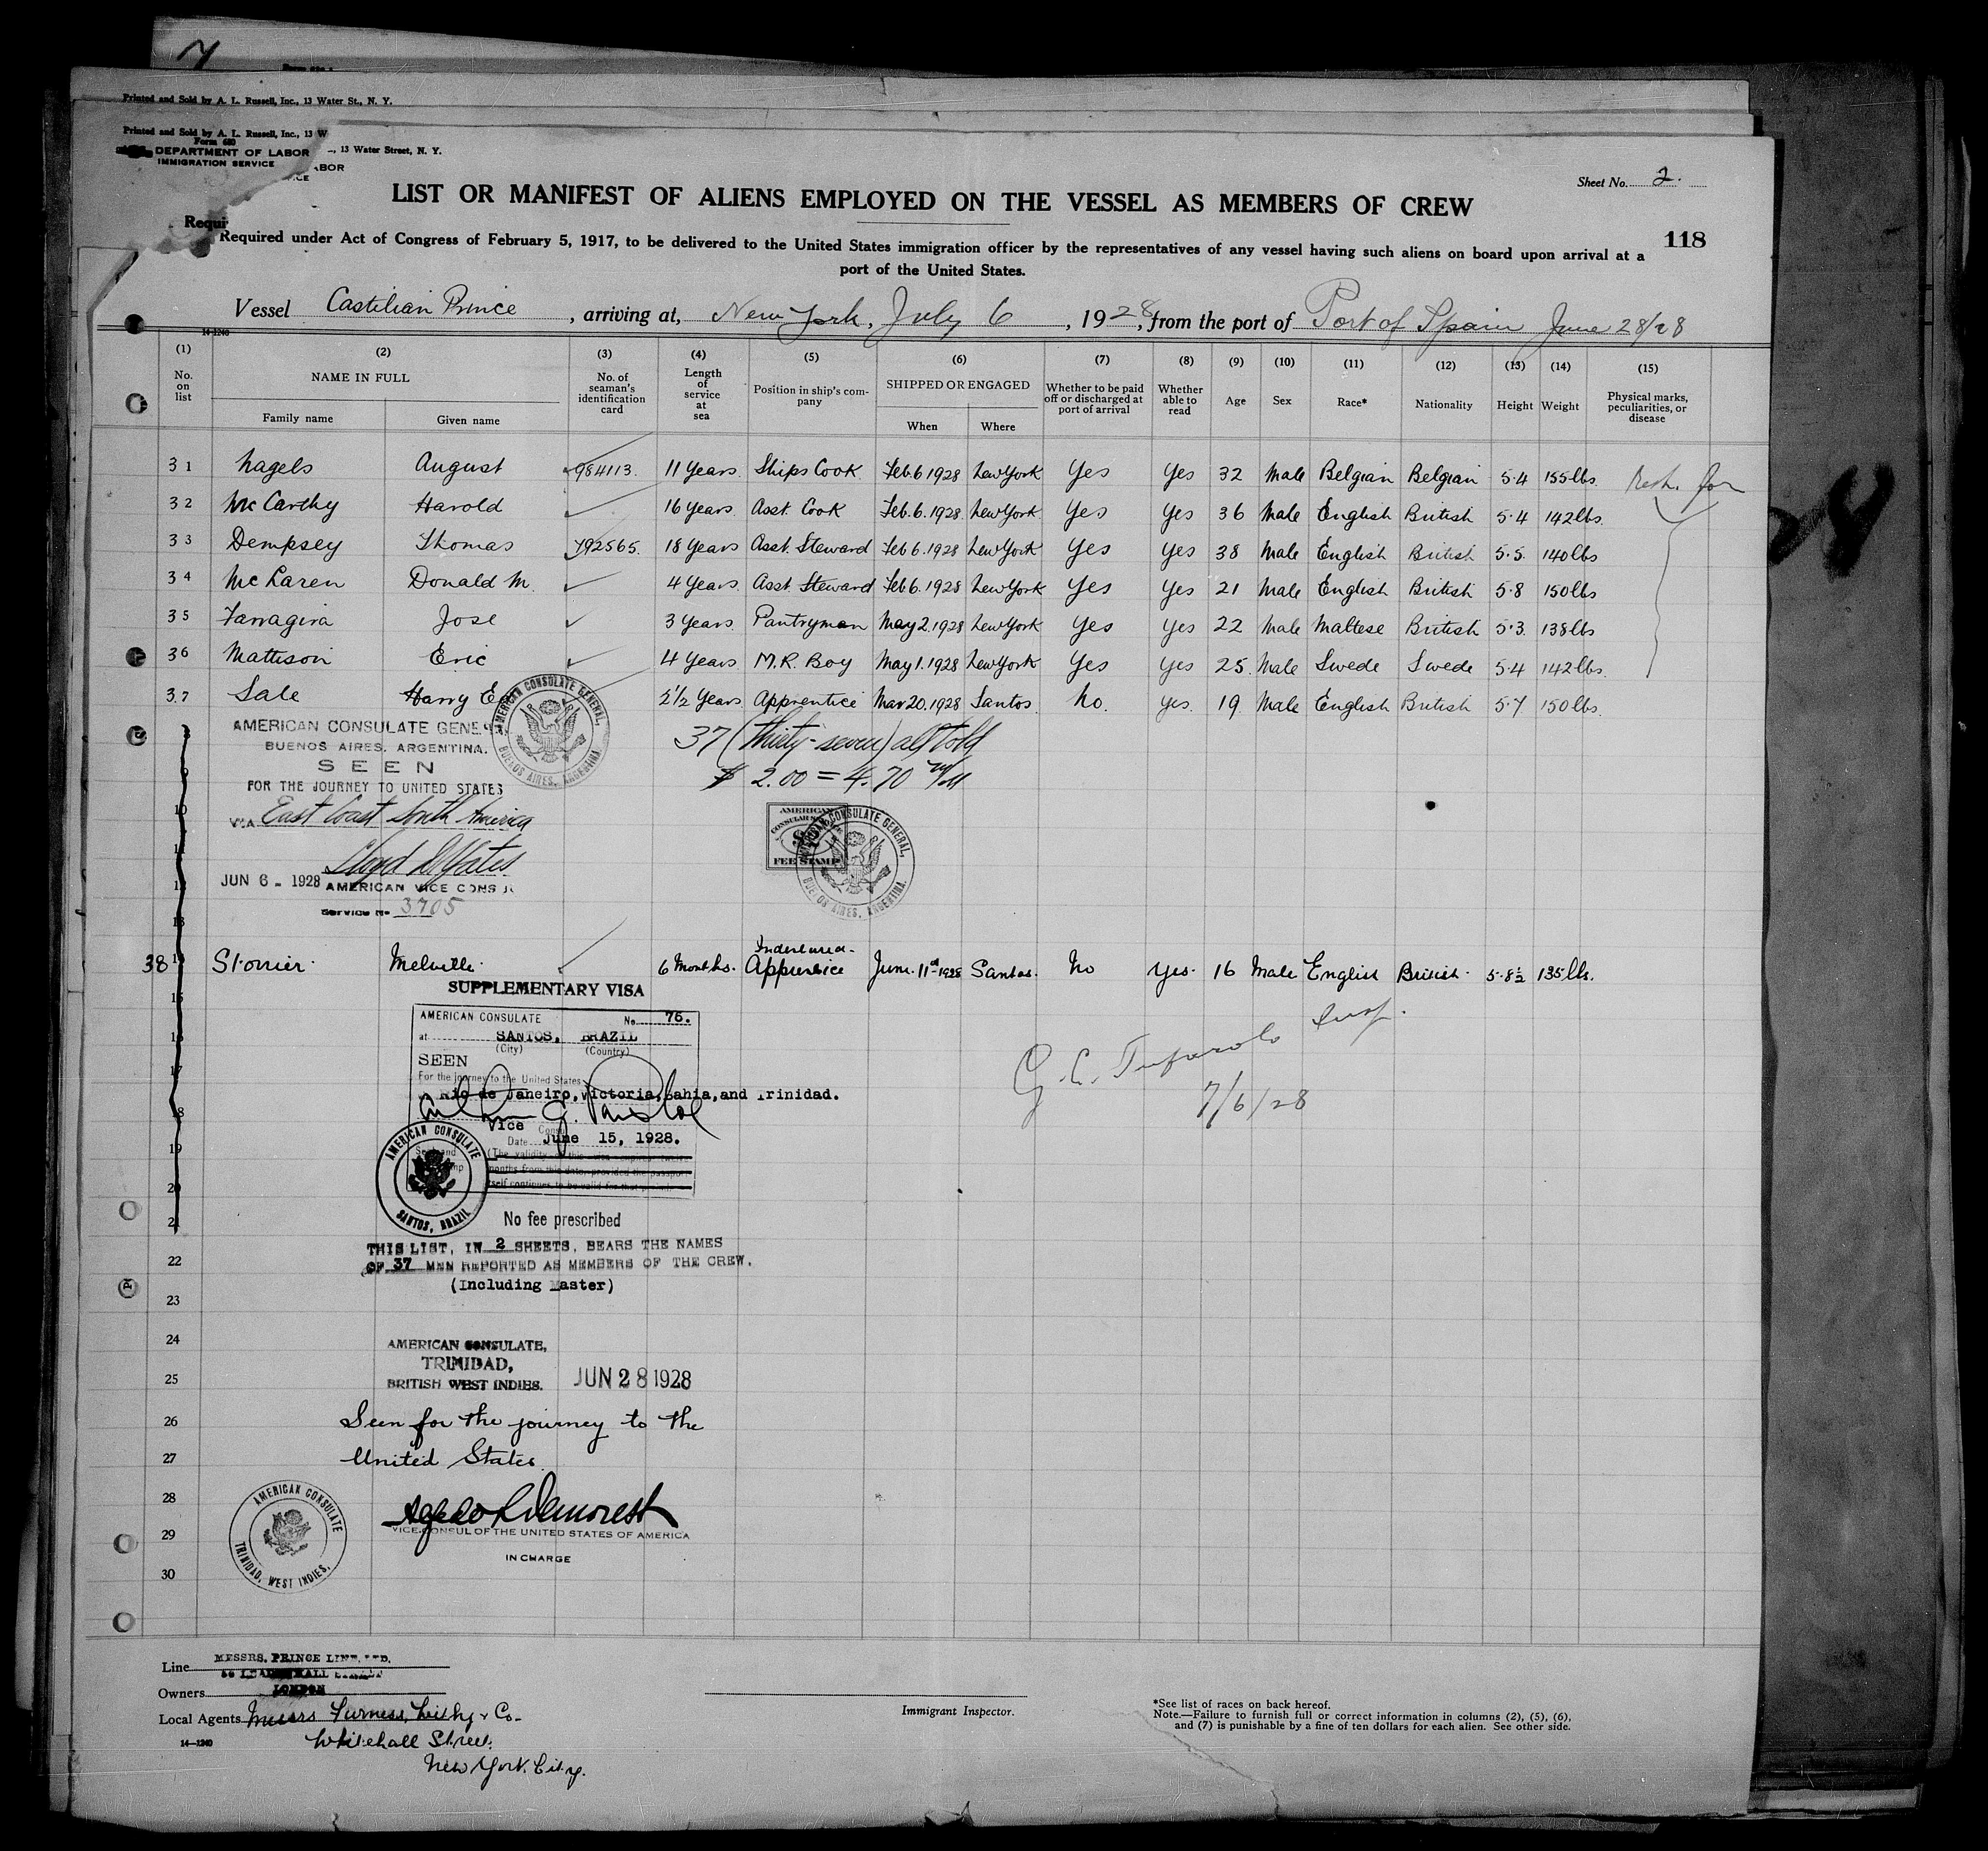 Printed and Sold by A. L. Russell, Inc., 13 Water St., N. Y.
Printed and Sold by A. L. Russell, Inc., 13 W
Form 680
DEPARTMENT OF LABOR
., 13 Water Street, N. Y.
IMMIGRATION SERVICE
ABOR
ICE
Sheet No. 2.
LIST OR MANIFEST OF ALIENS EMPLOYED ON THE VESSEL AS MEMBERS OF CREW
Requi
118
Required under Act of Congress of February 5, 1917, to be delivered to the United States immigration officer by the representatives of any vessel having such aliens on board upon arrival at a
port of the United States.
Vessel Castilian Prince, arriving at, New York, July 6, 1928, from the port of Port of Spain June 28/28
14-1240
(1) (2) (3) (4) (5) (6) (7) (8) (9) (10) (11) (12) (13) (14) (15)
No. on list
NAME IN FULL
Family name Given name
No. of seaman's identification card
Length of service at sea
Position in ship's company
SHIPPED OR ENGAGED
When Where
Whether to be paid off or discharged at port of arrival
Whether able to read
Age Sex Race* Nationality Height Weight
Physical marks, peculiarities, or disease
31 Nagels August 984113. 11 Years Ships Cook Feb. 6 1928 New York Yes Yes 32 Male Belgian Belgian 5.4 155 lbs.
32 McCarthy Harold 16 Years. Asst. Cook Feb. 6. 1928 New York Yes Yes 36 Male English British 5.4 142 lbs.
33 Dempsey Thomas 792565. 18 Years Asst. Steward Feb 6. 1928 New York Yes Yes 38 Male English British 5.5. 140 lbs
34 McLaren Donald M. 4 Years. Asst. Steward Feb 6. 1928 New York Yes Yes 21 Male English British 5.8 150 lbs
35 Farragira Jose 3 Years. Pantryman May 2. 1928 New York Yes Yes 22 Male Maltese British 5.3. 138 lbs
36 Mattison Eric 4 Years M.R. Boy May 1. 1928 New York Yes Yes 25. Male Swede Swede 5.4 142 lbs.
37 Sale Harry E 2½ Years Apprentice Mar 20. 1928 Santos. No. Yes. 19 Male English British 5.7 150 lbs.
AMERICAN CONSULATE GENE
BUENOS AIRES, ARGENTINA.
SEEN
FOR THE JOURNEY TO UNITED STATES
VIA East Coast South America
JUN 6 - 1928
AMERICAN VICE CONSU
Service No 3705
AMERICAN CONSULATE GENERAL,
BUENOS AIRES, ARGENTINA
37 (thirty-seven) all told
$ 2.00 = 4.70 m/n
AMERICAN
CONSULAR
FEE STAMP
AMERICAN CONSULATE GENERAL,
BUENOS AIRES, ARGENTINA.
10
11
12
13
Indentured
38 Storrier Melville 6 Months. Apprentice June. 11th 1928 Santos. No Yes. 16 Male English British 5.8½ 135 lbs.
SUPPLEMENTARY VISA
15
AMERICAN CONSULATE No. 75.
at SANTOS, BRAZIL
(City) (Country)
16
SEEN
For the journey to the United States
17
Rio de Janeiro, Victoria, Bahia, and Trinidad.
18
Vice Consul
Date June 15, 1928.
19
20
AMERICAN CONSULATE
SANTOS, BRAZIL
21
No fee prescribed
THIS LIST, IN 2 SHEETS, BEARS THE NAMES
OF 37 MEN REPORTED AS MEMBERS OF THE CREW.
(Including Master)
7/6/28
22
23
24
AMERICAN CONSULATE,
TRINIDAD,
BRITISH WEST INDIES.
JUN 28 1928
25
26
Seen for the journey to the
27
United States.
28
29
VICE-CONSUL OF THE UNITED STATES OF AMERICA
IN CHARGE
30
AMERICAN CONSULATE
TRINIDAD, WEST INDIES.
Line MESSRS. PRINCE LINE, LTD.
Owners LONDON
Local Agents Messrs Furness, Withy & Co.
Whitehall Street.
New York. City.
14-1240
Immigrant Inspector.
*See list of races on back hereof.
Note.—Failure to furnish full or correct information in columns (2), (5), (6),
and (7) is punishable by a fine of ten dollars for each alien. See other side.